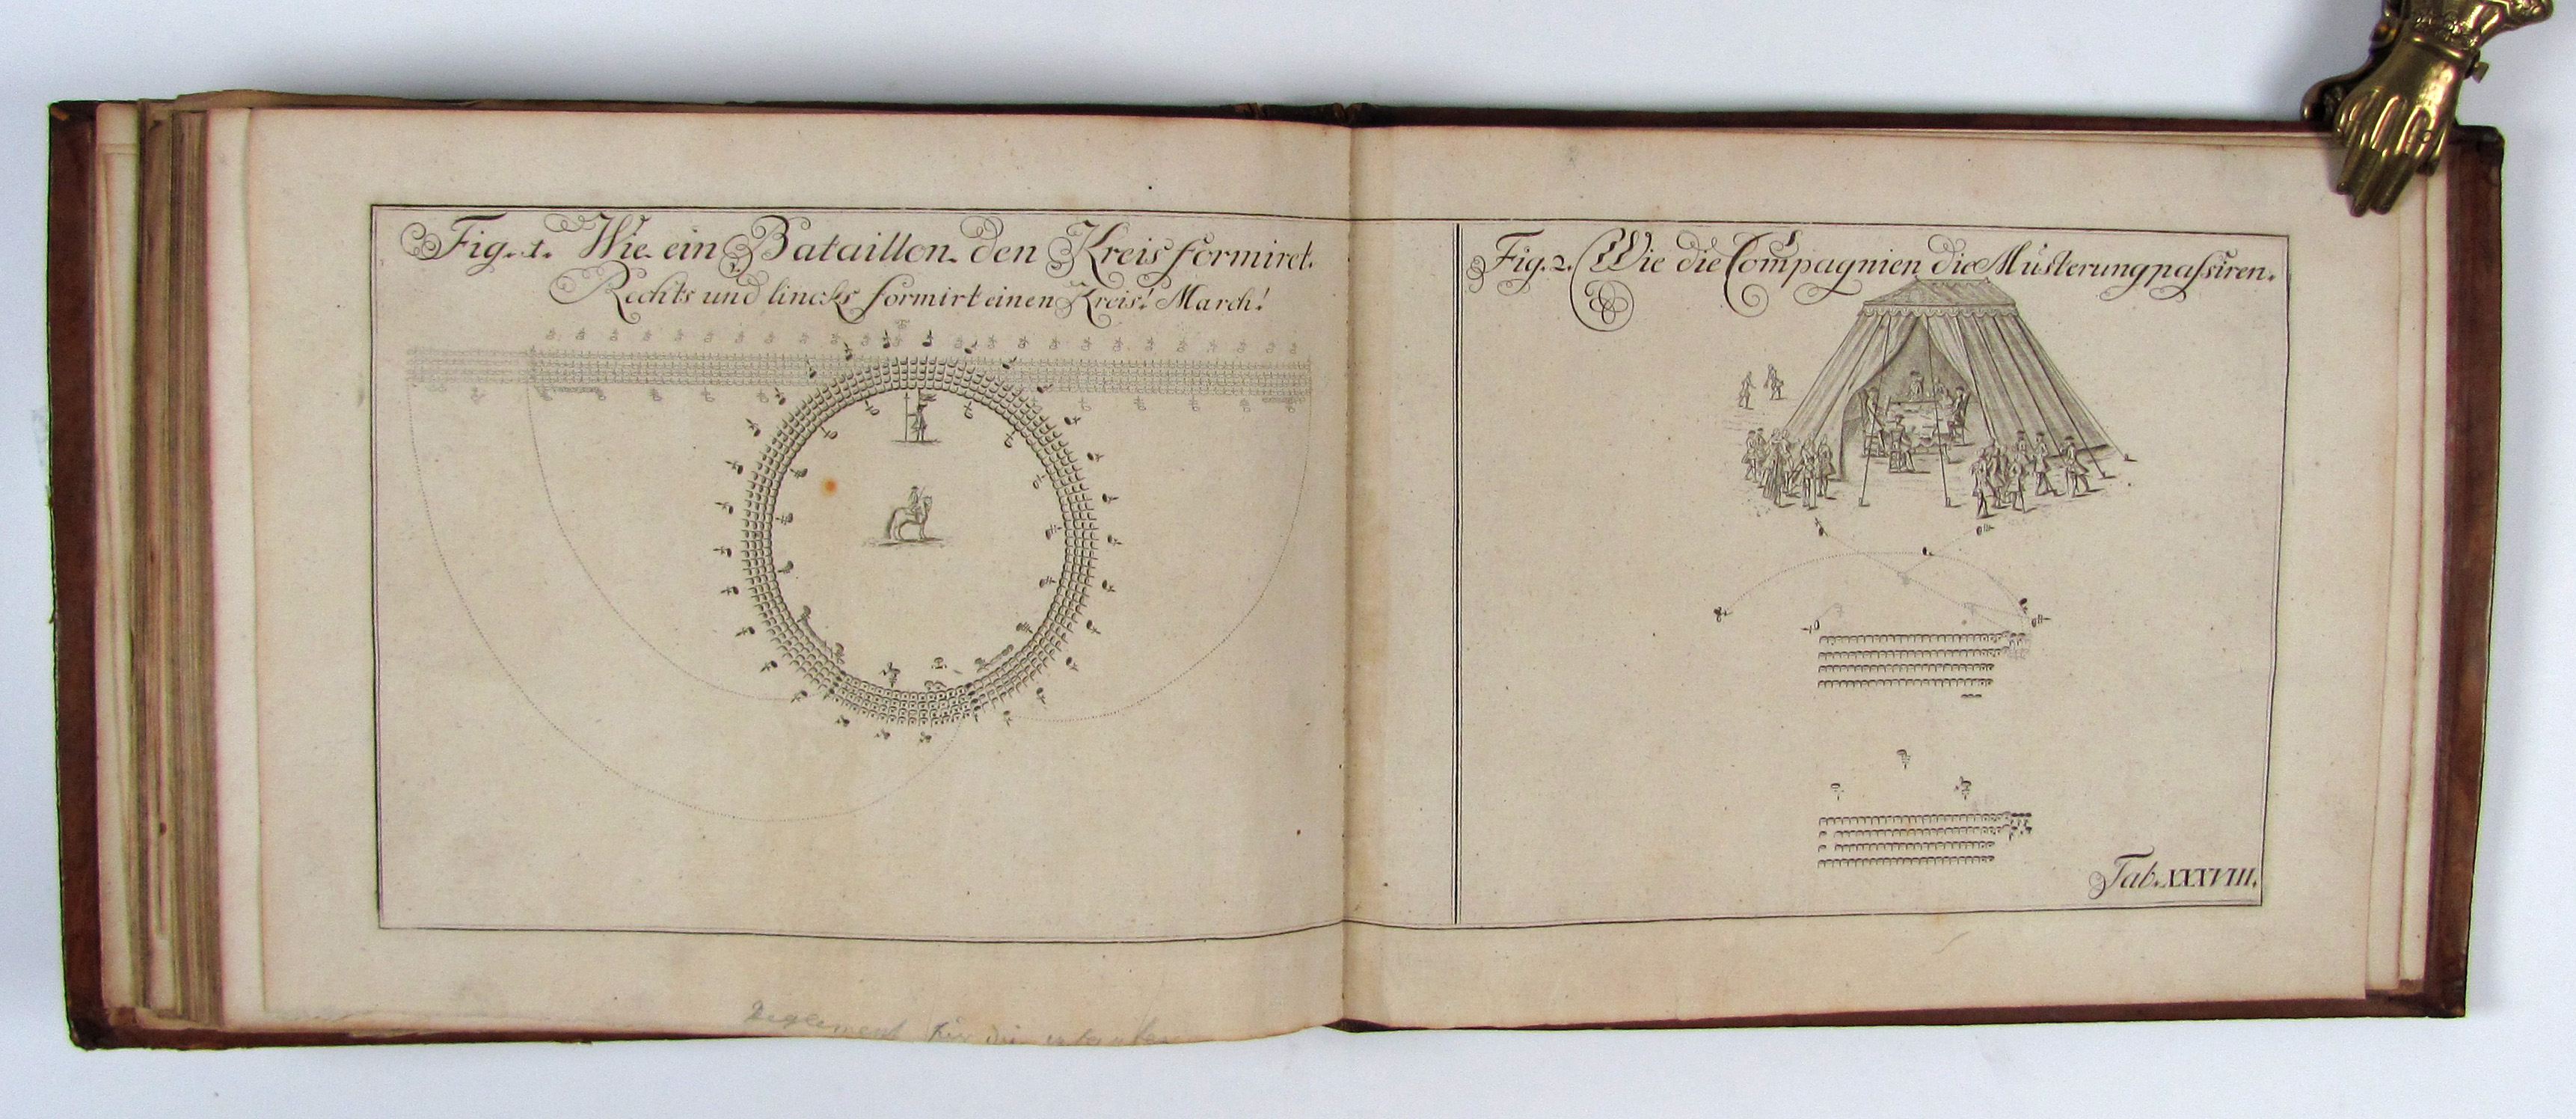 Fig. 1. Wie ein Bataillon den Kreis formiret.
Rechts und lincks formirt einen Kreis! March!
Fig. 2. Wie die Compagnien die Musterung passiren.
Tab. LXXVIII.
Reglement für die